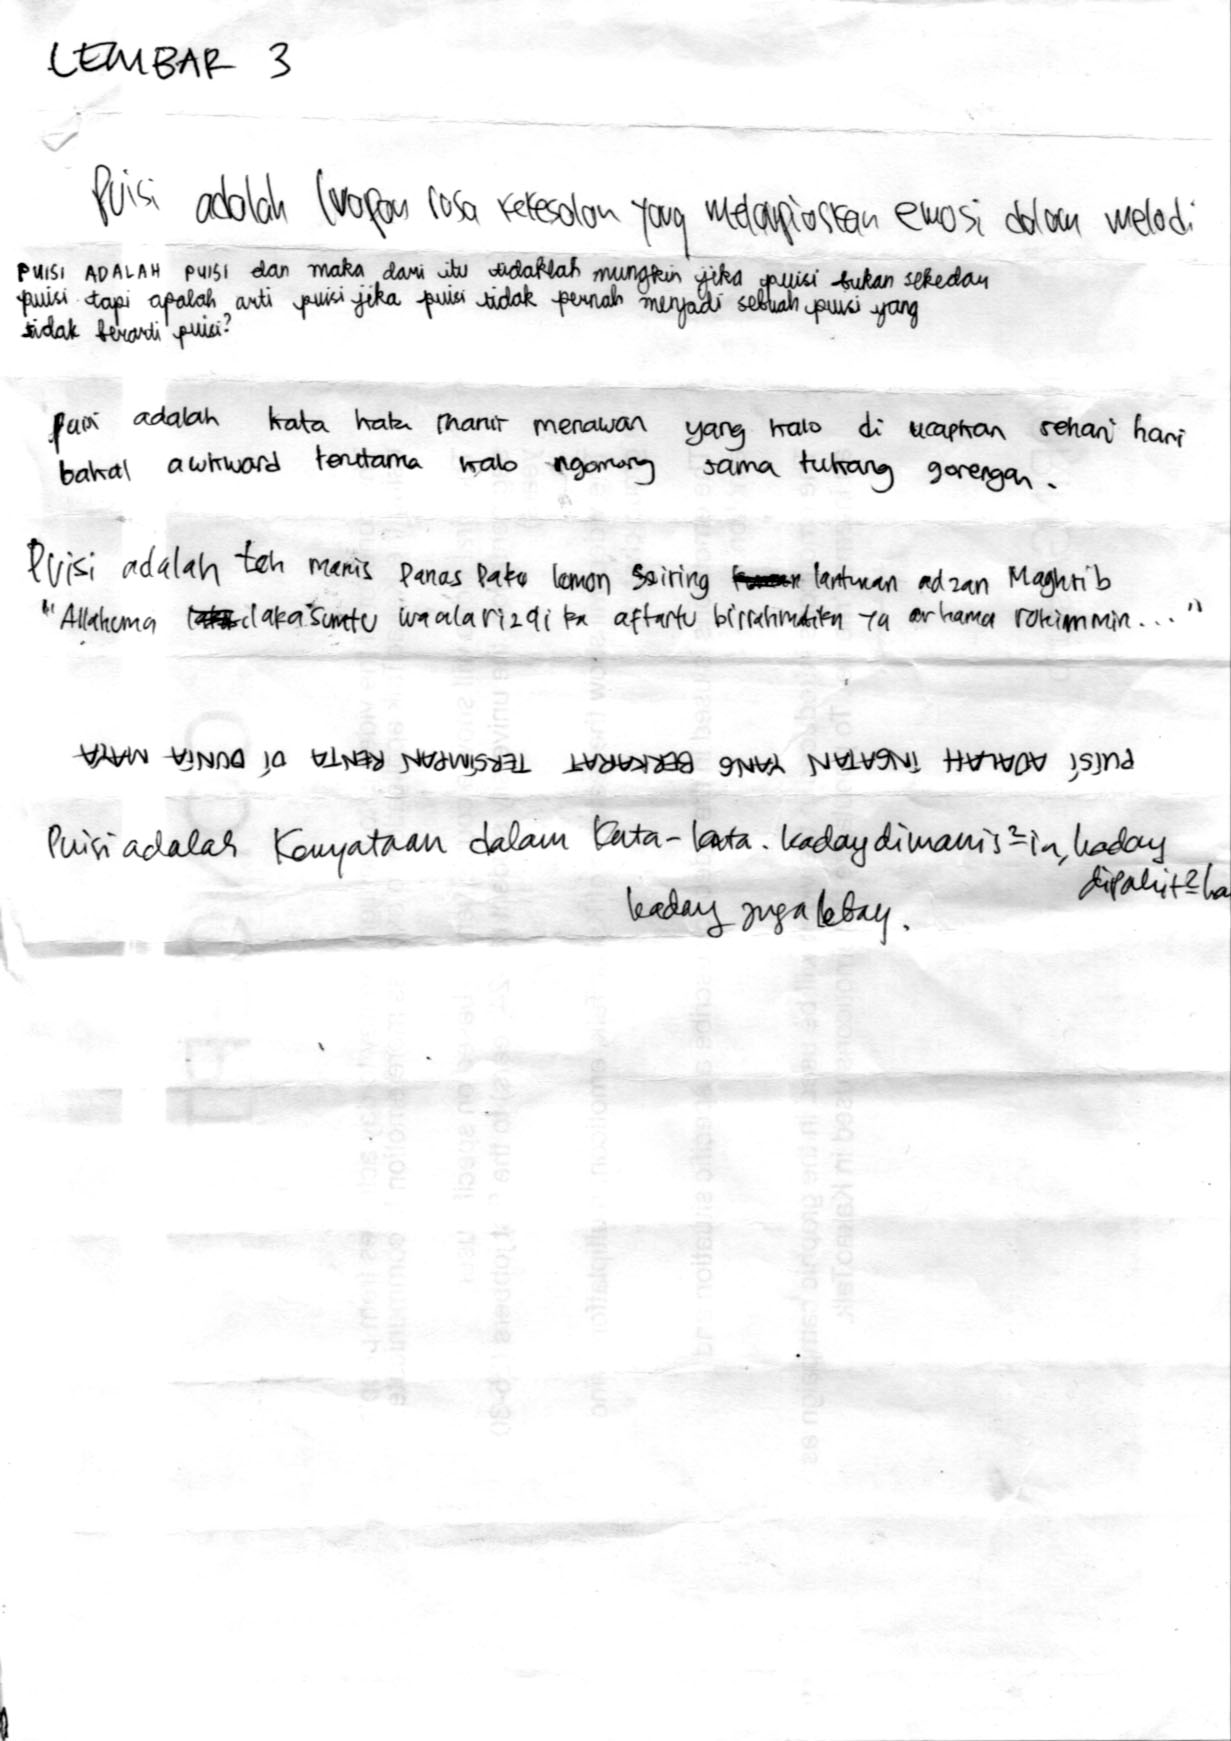 LEMBAR 3
Puisi adalah luapan rasa kekesalan yang melampiaskan emosi dalam melodi
PUISI ADALAH PUISI dan maka dari itu tidaklah mungkin jika puisi bukan sekedar
puisi tapi apalah arti puisi jika puisi tidak pernah menjadi sebuah puisi yang
tidak berarti puisi?
puisi adalah kata kata manis menawan yang kalo di ucapkan sehari hari
bakal awkward terutama kalo ngomong sama tukang gorengan.
Puisi adalah teh manis panas pake lemon seiring lantunan adzan Maghrib
"Allahuma lakasumtu waalarizqika aftartu birrahmatika ya arhama rohimmin..."
PUISI ADALAH INGATAN YANG BERKARAT TERSIMPAN RENTA DI DUNIA MAYA
Puisi adalah Kenyataan dalam Kata-kata. kadang dimanis²in, kadang
dipahit²
kadang juga lebay.